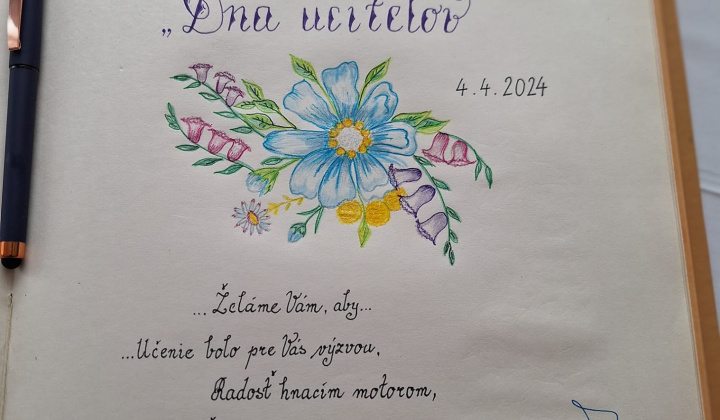 „Dňa učiteľov
4.4.2024
...Želáme Vám, aby...
...Učenie bolo pre Vás výzvou,
Radosť hnacím motorom,